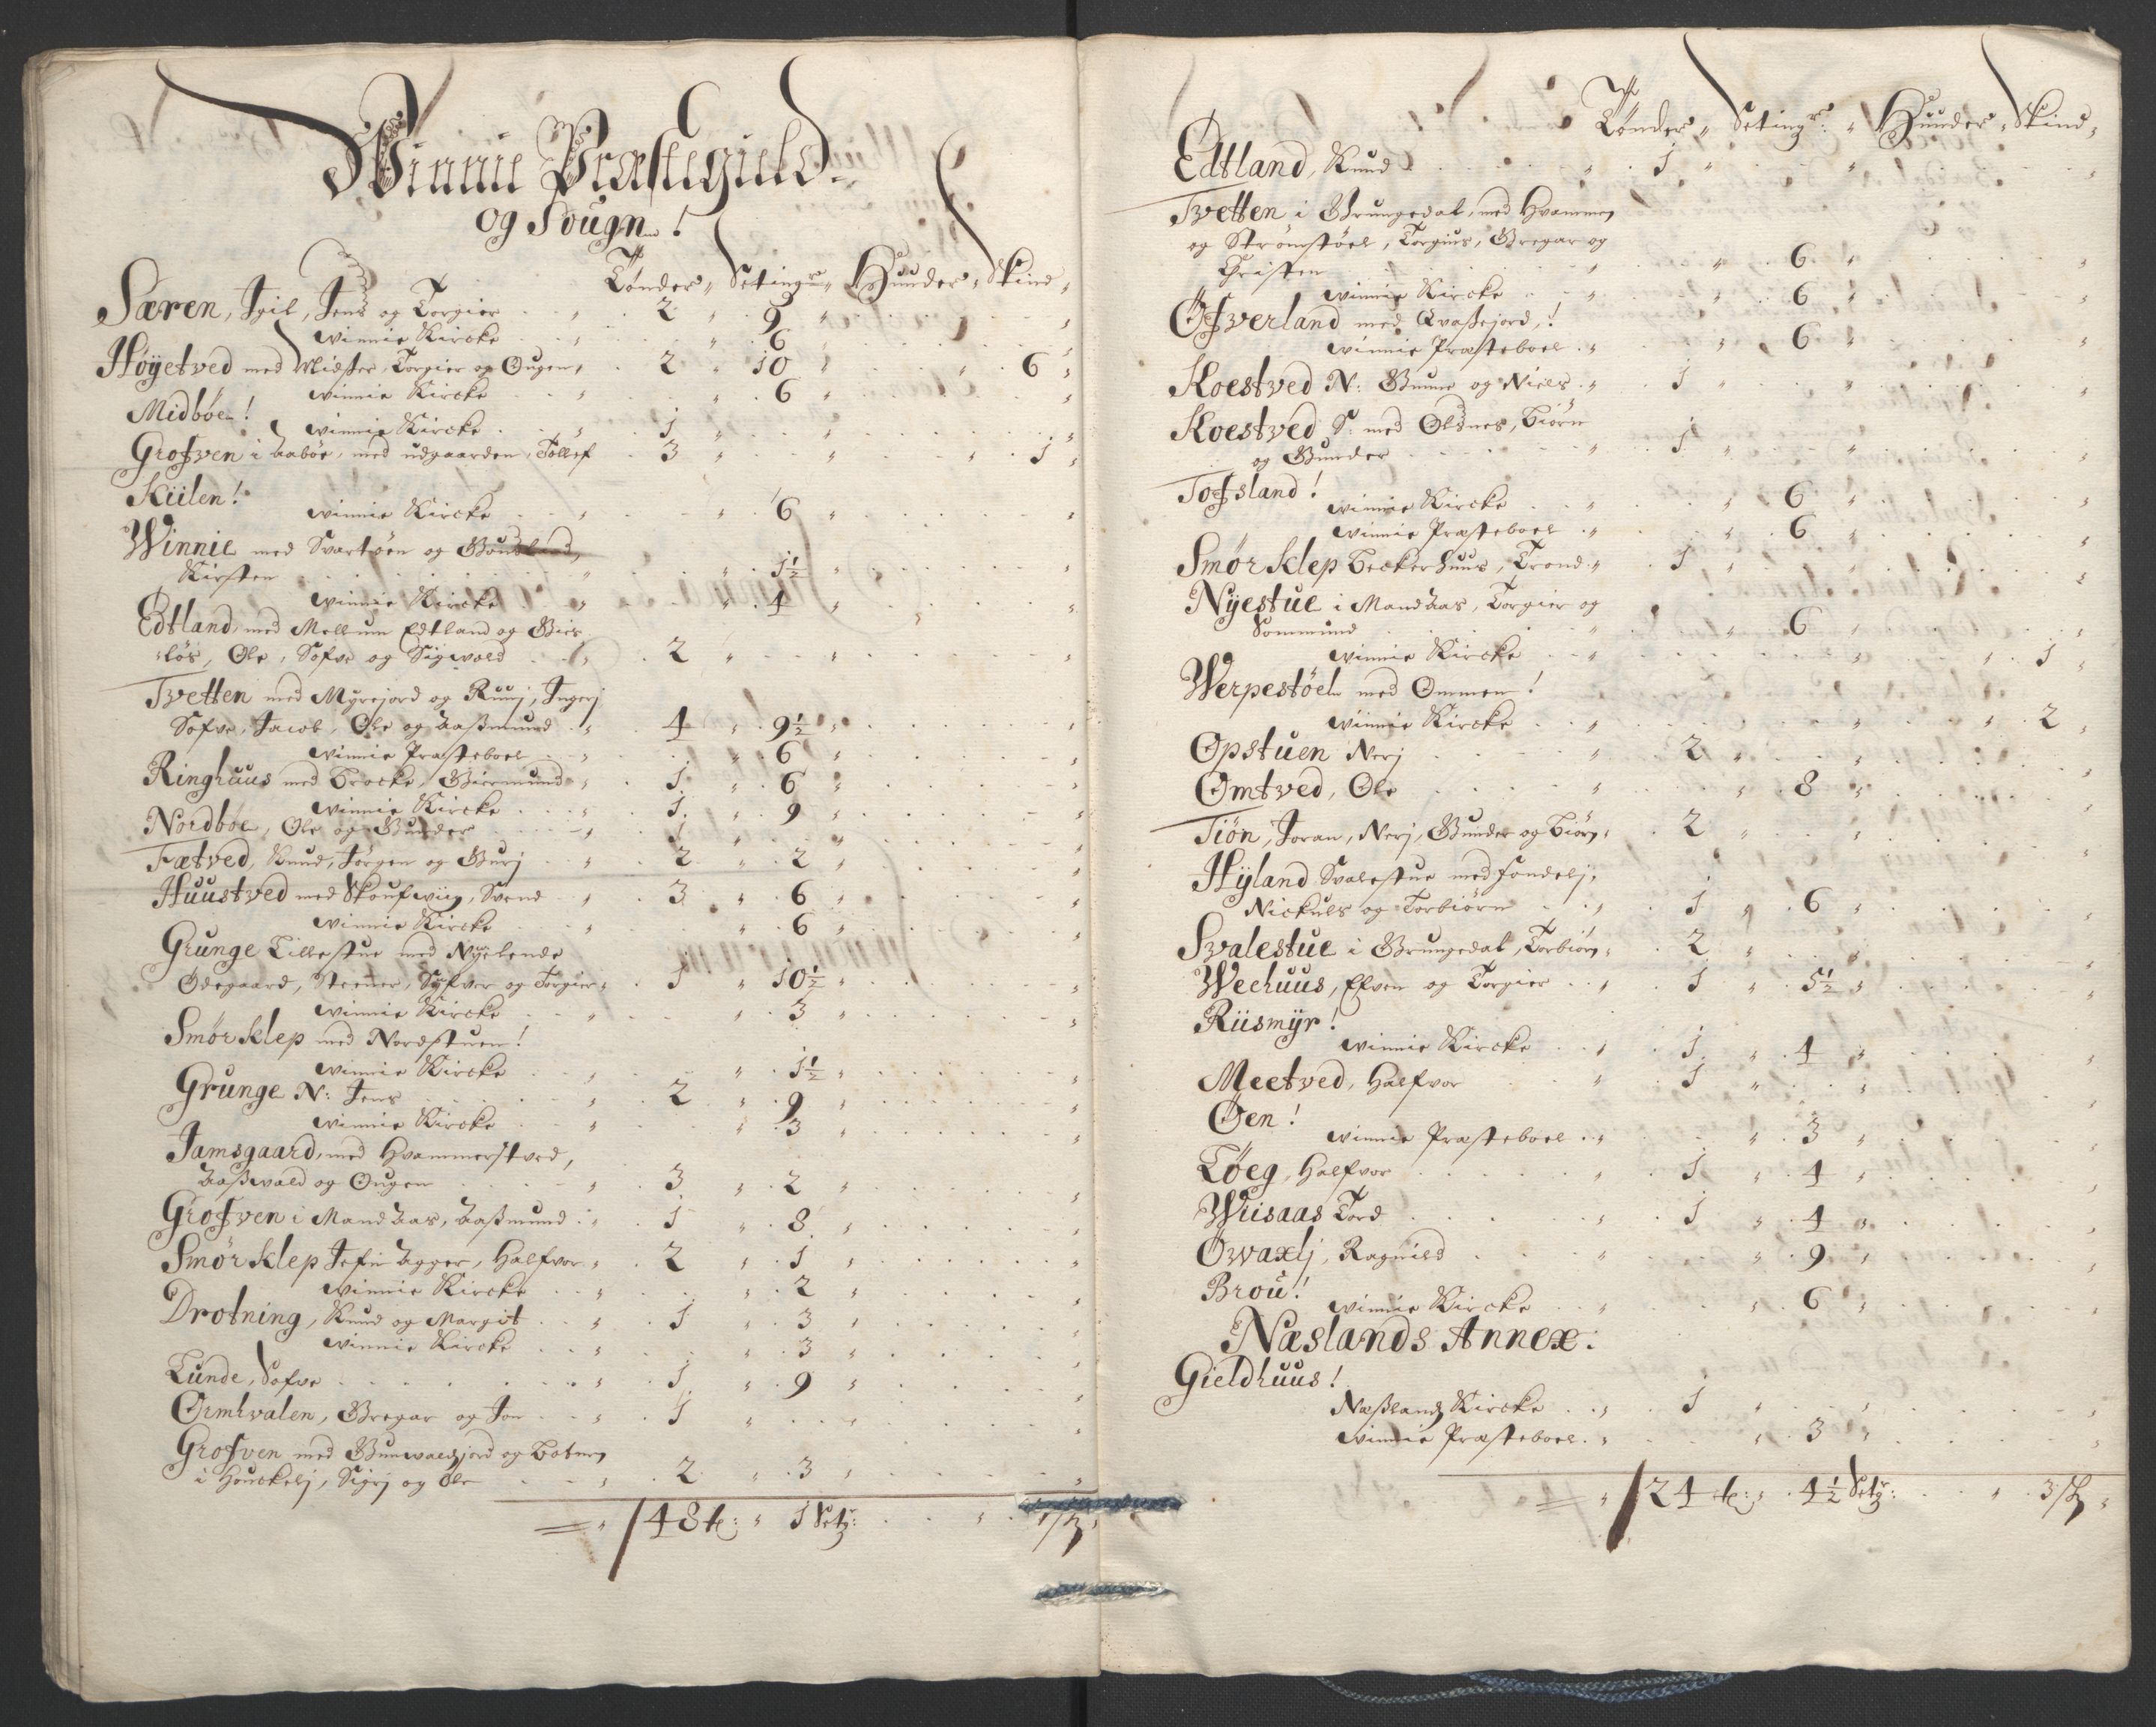 Winnie Præstegield
og Sougn!
Tønder " Setingr " Hunder " Skind "
Særen, Igil, Jens og Torgier " 2 " 9 "
winnie Kircke " 6 "
Høyetved med Midster, Torgier og Ougen, 2 " 10 " 6 "
winnie Kircke " 6 "
Midbøe!
winnie Kircke 1 "
Grofven i aabøe, med udgaarden, Tollef 3 " 1 "
Kiilen!
winnie Kircke " 6 "
Winnie med Svartøen og
Kirsten " 1½ "
winnie Kircke " 4 "
Edtland, med Mellum Edtland og Gies
løs, Ole, Sofve og Sigwold 2 "
Tvetten med Myrejord og Ruuj, Ingerj
Sofve, Jacob, Ole og Aaßmund " 4 " 9½ "
winnie Præsteboel " 6 "
Ringhuus med Brocke, Giermund " 1 " 6 "
winnie Kircke 1 " 9 "
Nordbøe, Ole og Gunder " 1 "
Fætved, Knud, Jørgen og Gurj " 2 " 2 "
Huustved med Skoufwiig, Svend " 3 " 6 "
winnie Kircke " 6 "
Grunge Tillestue med Nyelende
Ødegaard, Steener, Syfver og Torgier " 1 " 10½ "
winnie Kircke " 3 "
Smørklep med Nordstuen!
winnie Kircke " 1½ "
Grunge N: Jens " 2 " 9 "
winnie Kircke " 3 "
Jamsgaard, med Hvammerstved,
Aaßwald og Ougen " 3 " 2 "
Grofven i Mandaas, Aaßmund " 1 " 8 "
Smørklep Jefin Agger, Halfvor " 2 " 1 "
winnie Kircke " 2 "
Drotning, Knud og Margit " 1 " 3 "
winnie Kircke " 3 "
Lunde, Sofve " 1 " 9 "
Ormhvalen, Gregar og Jon " 1 "
Grofven med Gunvaldsjord og Botnen
i Houckelj, Sigrj og Ole " 2 " 3 "
48 t: " 1 Setg: "
Tønder " Setingr: " Hunder " Skind "
Edtland, Knud " 1 "
Tvetten i Grungedal, med Hvammen
og Strømstøel, Torgius, Gregar og
Christen " 6 "
winnie Kircke " 6 "
Øfverland med Qvaßejord,!
winnie Præsteboel " 6 "
Koestved N: Gunne og Niels " 1 "
Koestved S: med Oldnes, Biørn
og Gunder " 1 "
Tofsland!
winnie Kircke " 6 "
winnie Præsteboel " 6 "
Smørklep Beckerhuus, Trond " 1 "
Nyestue i Mandaas, Torgier og
Sommund " 6 "
winnie Kircke " 1 "
Werpestøel med Ommen!
winnie Kircke " 2 "
Opstuen Nerj " 2 "
Omtved, Ole " 8 "
Tiøn, Joran, Nerj, Gunder og Biørn " 2 "
Hyland Svalestue med Fondelj,
Nickuls og Torbiørn " 1 " 6 "
Svalestue i Grungedal, Torbiørn " 2 "
Wechuus, Efven og Torgier " 1 " 5½ "
Riismyr!
winnie Kircke " 1 " 4 "
Meetved, Halfvor " 1 "
Øen!
winnie Præsteboel " 3 "
Tøeg, Halfvor " 1 " 4 "
Wiisaas Tord " 1 " 4 "
Øwaxlj, Ragnild " 9 "
Brou!
winnie Kircke " 6 "
Næslands Annex.
Gieldhuus!
Næßlands Kircke " 1 "
winnie Præsteboel " 3 "
24 t: " 4½ Setg: " 3 sk "